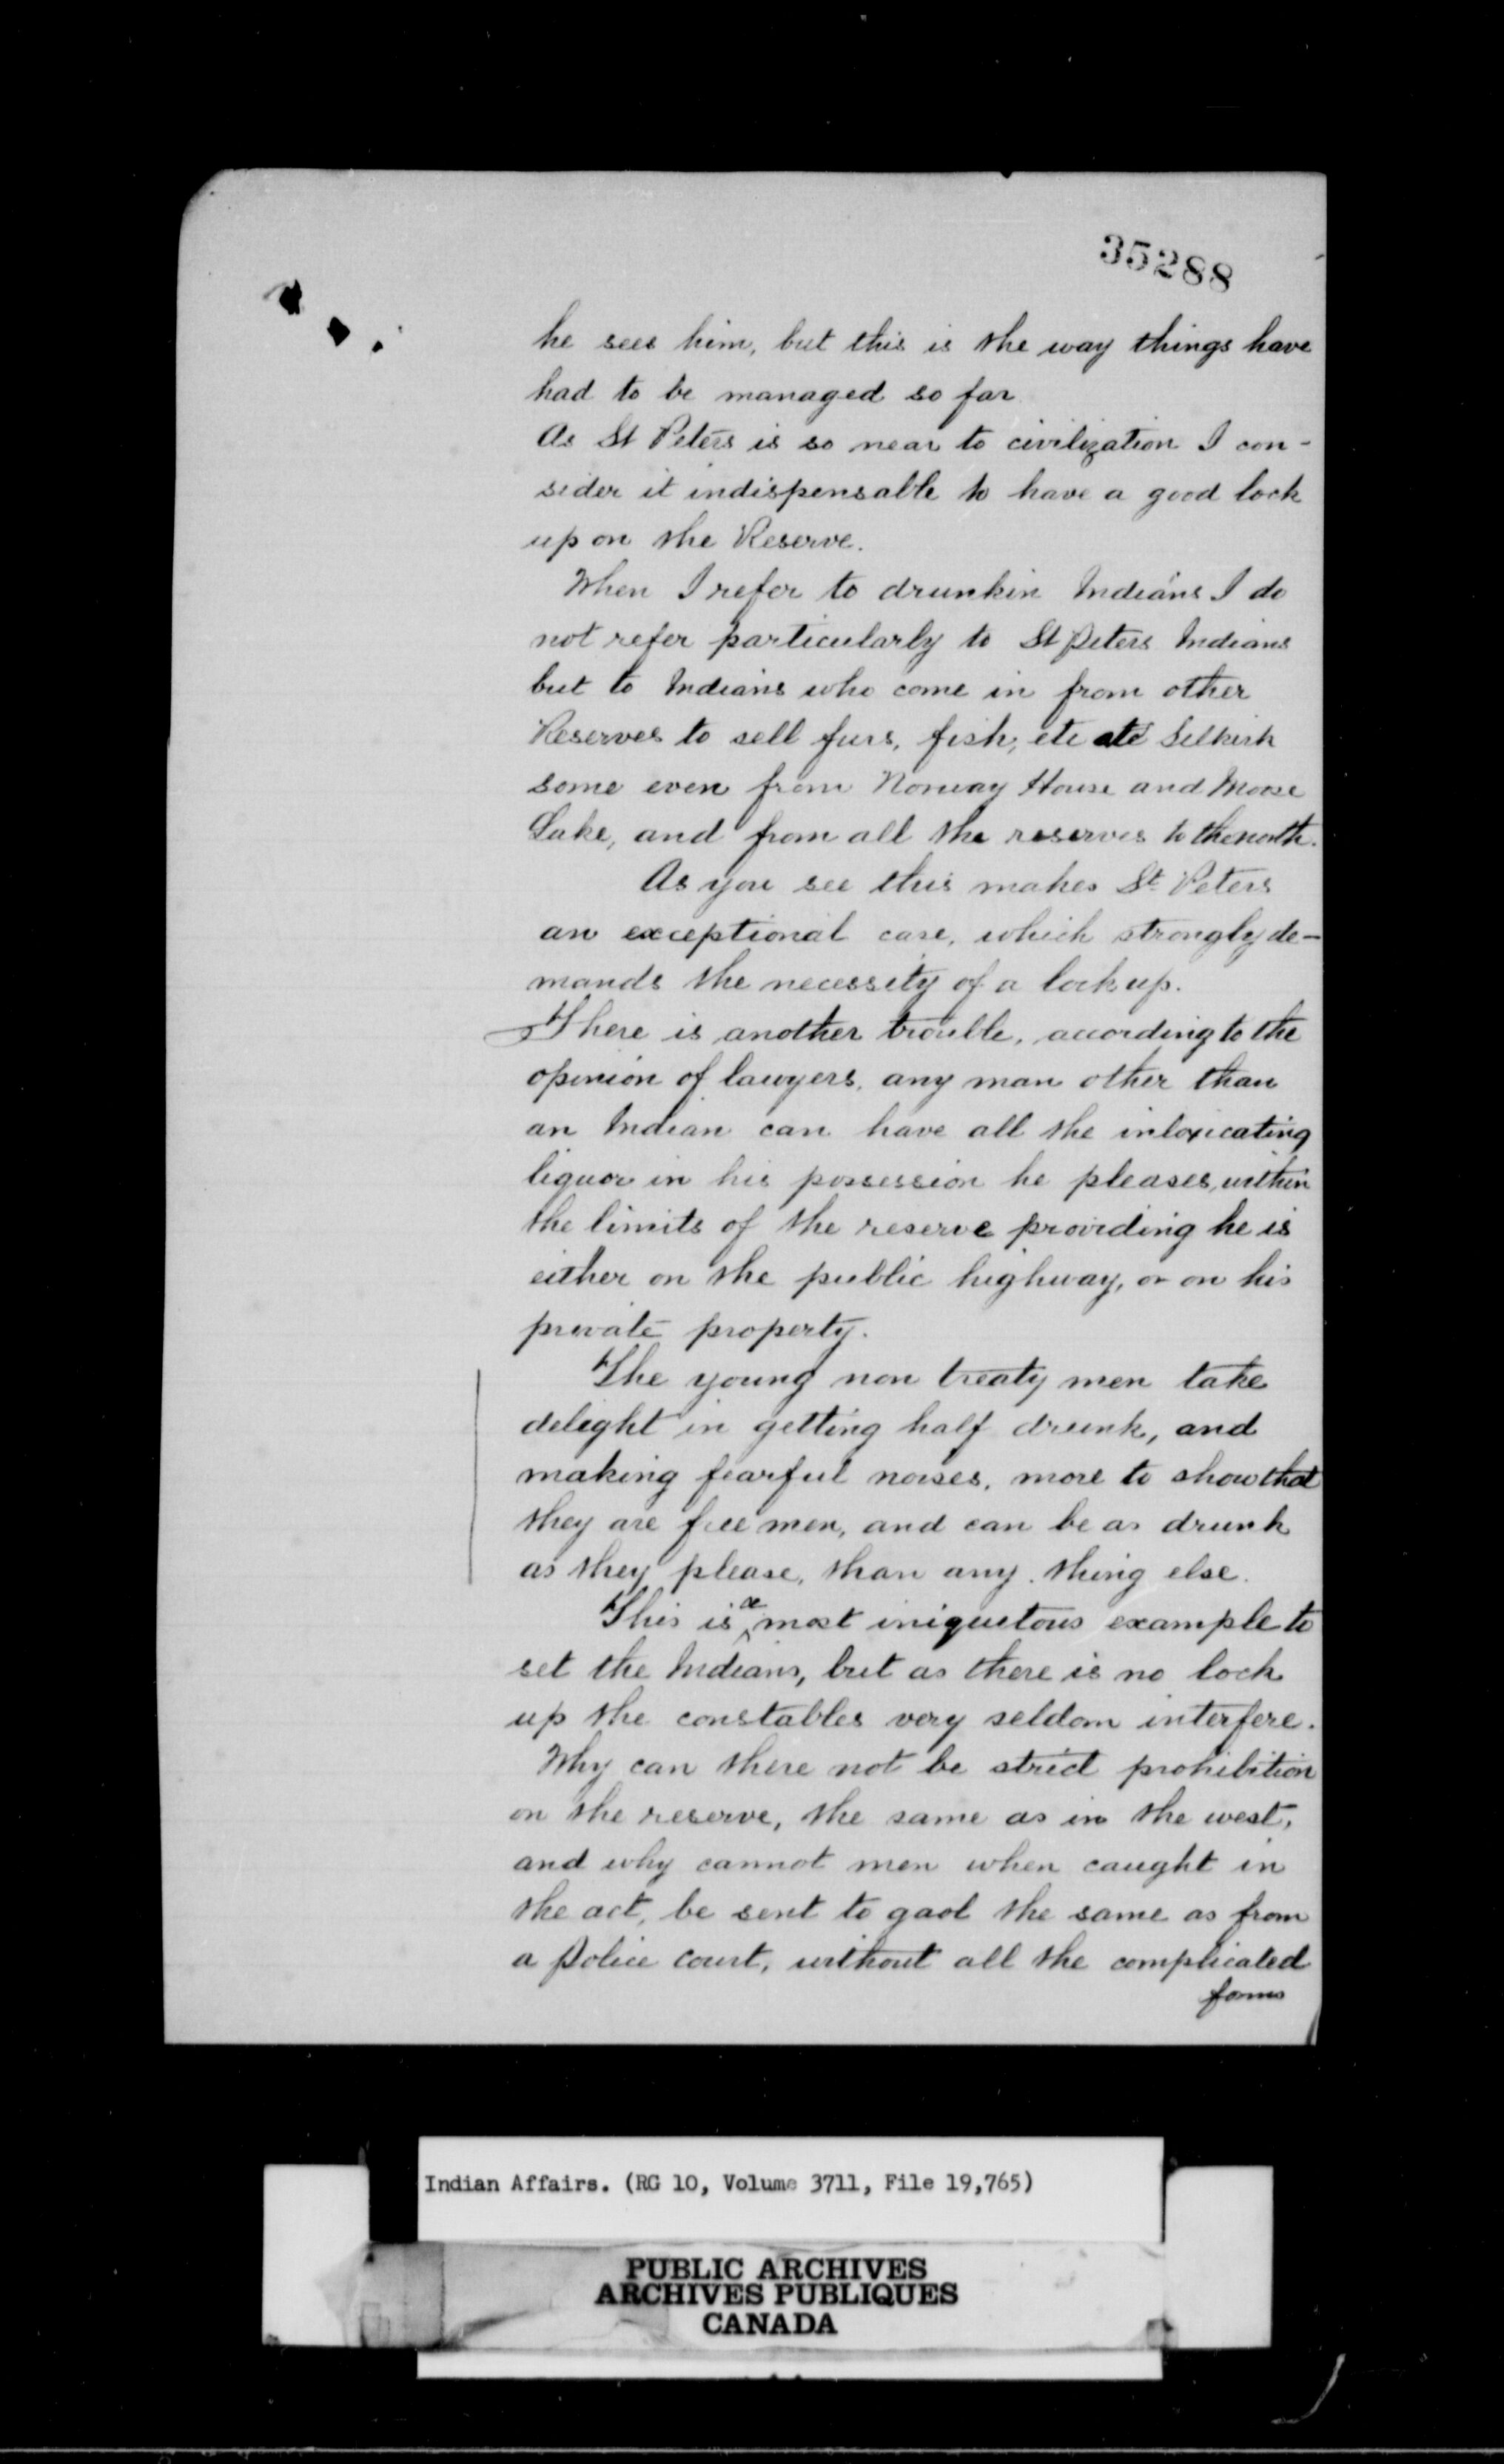 35288
he sees him, but this is the way things have
had to be managed so far
As St Peters is so near to civilization I con-
sider it indispensable to have a good lock
up on the Reserve.
When I refer to drunkin Indians I do
not refer particularly to St Peters Indians
but to Indians who come in from other
Reserves to sell furs, fish, etc at Selkirk
some even from Norway House and Moose
Lake, and from all the reserves to the north.
As you see this makes St. Peters
an exceptional case, which strongly de-
mands the necessity of a lock up.
There is another trouble, according to the
opinion of lawyers, any man other than
an Indian can have all the intoxicating
liquor in his possession he pleases, within
the limits of the reserve providing he is
either on the public highway, or on his
private property.
The young non treaty men take
delight in getting half drunk, and
making fearful noises, more to show that
they are free men, and can be as drunk
as they please, than any thing else.
This is a most iniquitous example to
set the Indians, but as there is no lock
up the constables very seldom interfere.
Why can there not be strict prohibition
on the reserve, the same as in the west,
and why cannot men when caught in
the act, be sent to gaol the same as from
a Police court, without all the complicated
forms
Indian Affairs. (RG 10, Volume 3711, File 19,765)
PUBLIC ARCHIVES
ARCHIVES PUBLIQUES
CANADA